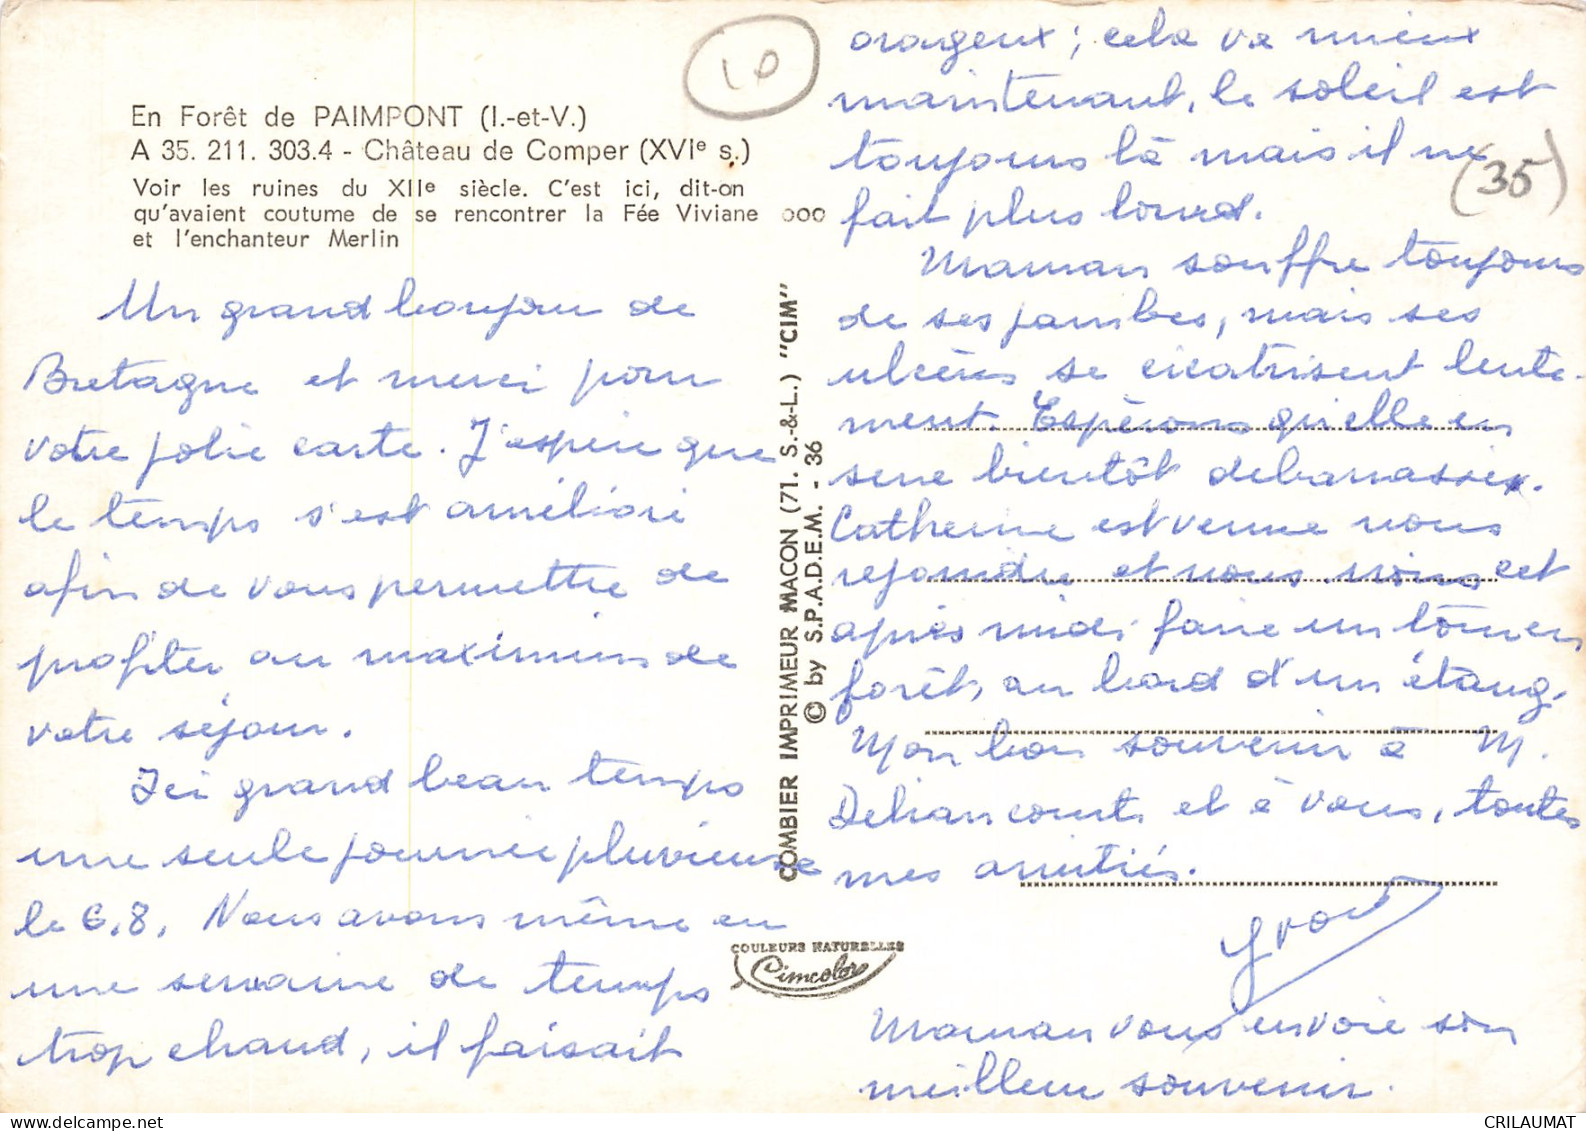 En Forêt de PAIMPONT (I.-et-V.)
A 35. 211. 303.4 - Château de Comper (XVIe s.)
Voir les ruines du XIIe siècle. C'est ici, dit-on
qu'avaient coutume de se rencontrer la Fée Viviane
et l'enchanteur Merlin
Un grand bonjour de
Bretagne et merci pour
votre jolie carte. J'espère que
le temps s'est amélioré
afin de vous permettre de
profiter au maximum de
votre séjour.
Ici grand beau temps
une seule journée pluvieuse
le 6.8. Nous avons même eu
une semaine de temps
trop chaud, il faisait
COMBIER IMPRIMEUR MACON (71. S.-&-L.) "CIM"
© by S.P.A.D.E.M. - 36
COULEURS NATURELLES
Cimcolor
10
(35)
orageux ; cela va mieux
maintenant, le soleil est
toujours là mais il ne
fait plus lourd.
Maman souffre toujours
de ses jambes, mais ses
ulcères se cicatrisent lente-
ment. Espérons qu'elle en
sera bientôt débarrassée.
Catherine est venue nous
rejoindre et nous irons cet
après midi faire un tour en
forêt, au bord d'un étang.
Mon bon souvenir à M.
et à vous, toutes
mes amitiés.
Yvon
Maman vous envoie son
meilleur souvenir.
CRILAUMAT